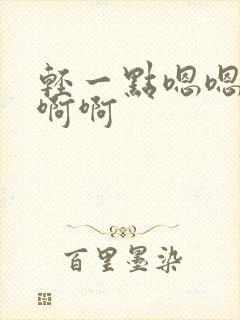 輕一點嗯嗯
啊啊
百里墨染